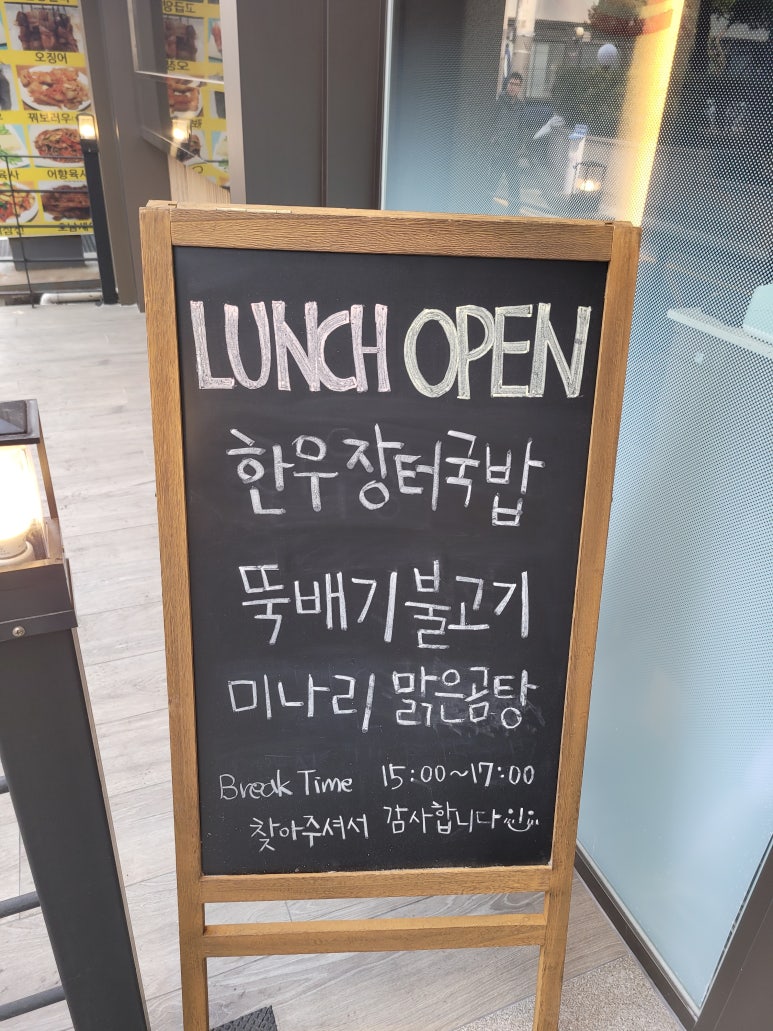 오징어
꿔토러우
어향육사
LUNCH OPEN
한우장터국밥
뚝배기불고기
미나리 맑은곰탕
Break Time 15:00~17:00
찾아주셔서 감사합니다